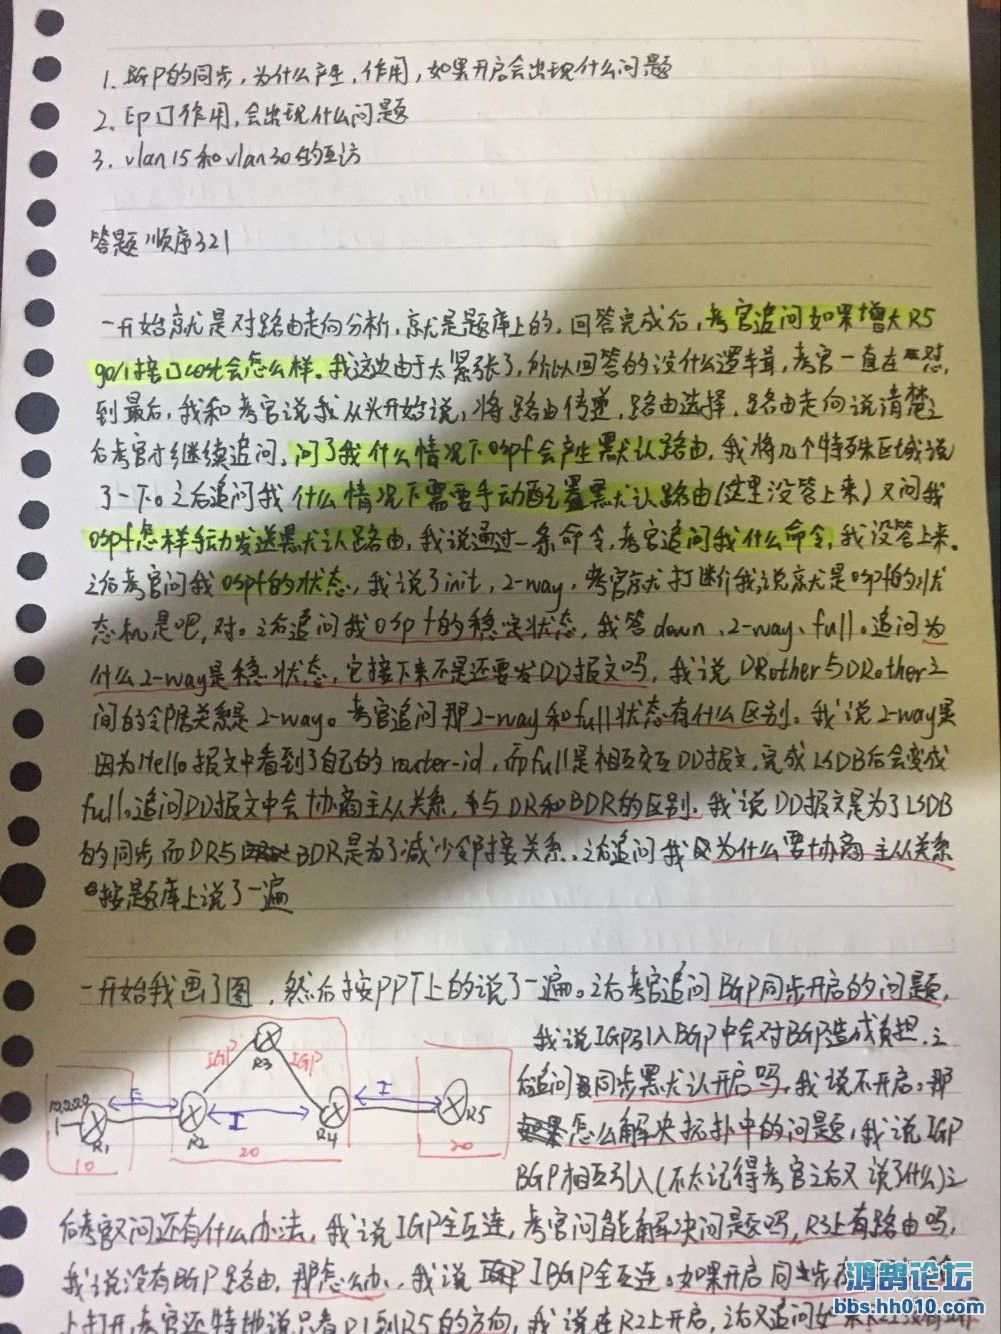 1. BGP的同步，为什么产生，作用，如果开启会出现什么问题
2. EP订作用，会出现什么问题
3. vlan15和vlan30的互访
答题顺序321
一开始就是对路由走向分析，就是题库上的，回答完成后，考官追问如果增大R5
g0/1接口cost会怎么样。我这边由于太紧张了，所以回答的没什么逻辑，考官一直在怼，
到最后，我和考官说我从头开始说，将路由传递，路由选择，路由走向说清楚之
后考官才继续追问，问了我什么情况下ospf会产生默认路由，我将几个特殊区域说
了一下。之后追问我什么情况下需要手动配置默认路由（这里没答上来）又问我
ospf怎样手动发送默认路由，我说通过一条命令，考官追问我什么命令，我没答上来。
之后考官问我ospf的状态，我说了init，2-way，考官就打断我说就是ospf的状
态机是吧，对。之后追问我ospf的稳定状态，我答down、2-way、full。追问为
什么2-way是稳状态，它接下来不是还要发DD报文吗，我说DRother与DRother之
间的邻居关系是2-way。考官追问那2-way和full状态有什么区别。我说2-way是
因为Hello报文中看到了自己的router-id，而full是相互交互DD报文，完成LSDB后会变成
full。追问DD报文中会协商主从关系，与DR和BDR的区别。我说DD报文是为了LSDB
的同步而DR与BDR是为了减少邻接关系。之后追问我为什么要协商主从关系
按题库上说了一遍
一开始我画了图，然后按PPT上的说了一遍。之后考官追问BGP同步开启的问题，
我说IGP引入BGP中会对BGP造成负担，之
后追问同步默认开启吗，我说不开启。那
怎么解决拓扑中的问题，我说IGP
BGP相互引入（不太记得考官之后又说了什么）之
IGP IGP
R3
E I I
R1 R2 R4 R5
10 20 20
后考官又问还有什么办法，我说IGP全互连，考官问能解决问题吗，R3上有路由吗，
我说没有BGP路由，那怎么办，我说IBGP全互连。如果开启同步在
上打开，考官还特地说只看R1到R5的方向，我说在R2上开启，之后又追问如果R2
鸿鹄论坛
bbs.hh010.com